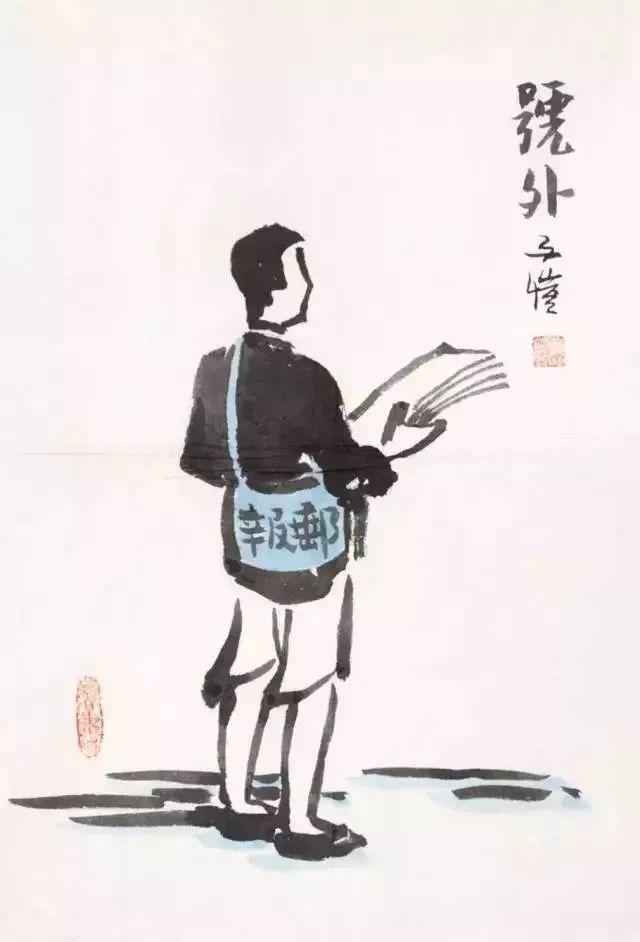 號外
子愷
郵報